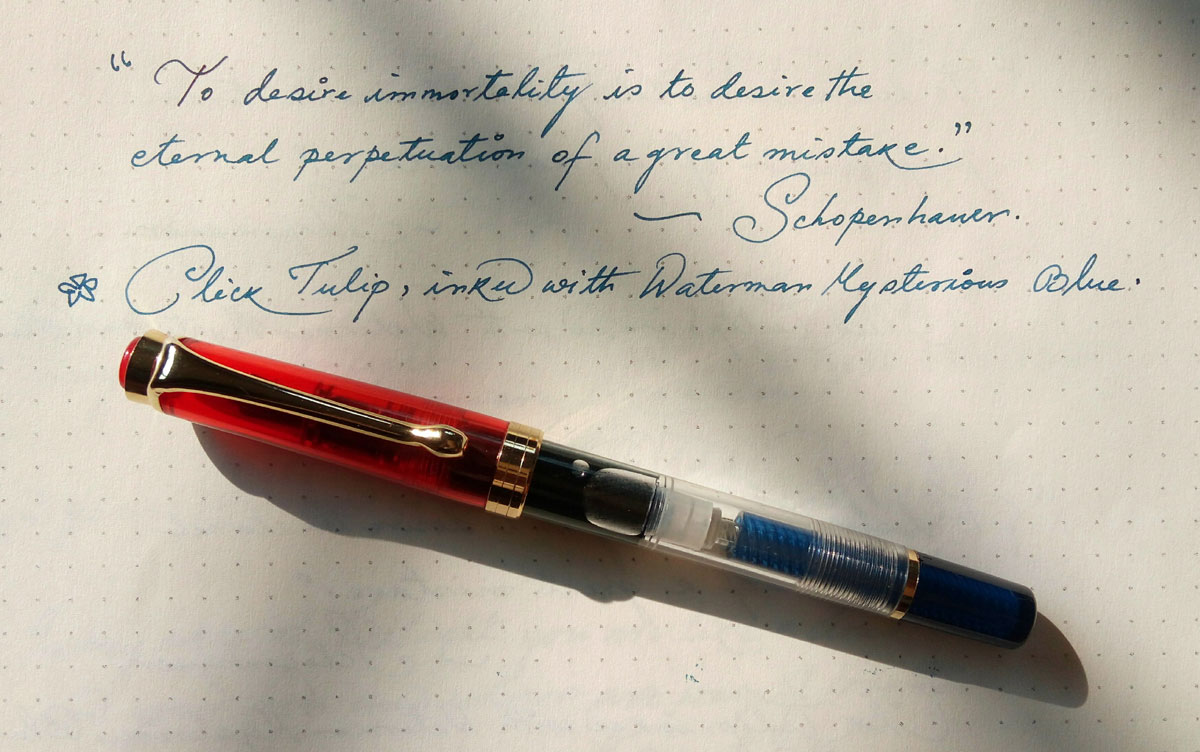 “To desire immortality is to desire the
eternal perpetuation of a great mistake.”
— Schopenhauer.
Click Tulip, inked with Waterman Mysterious Blue.